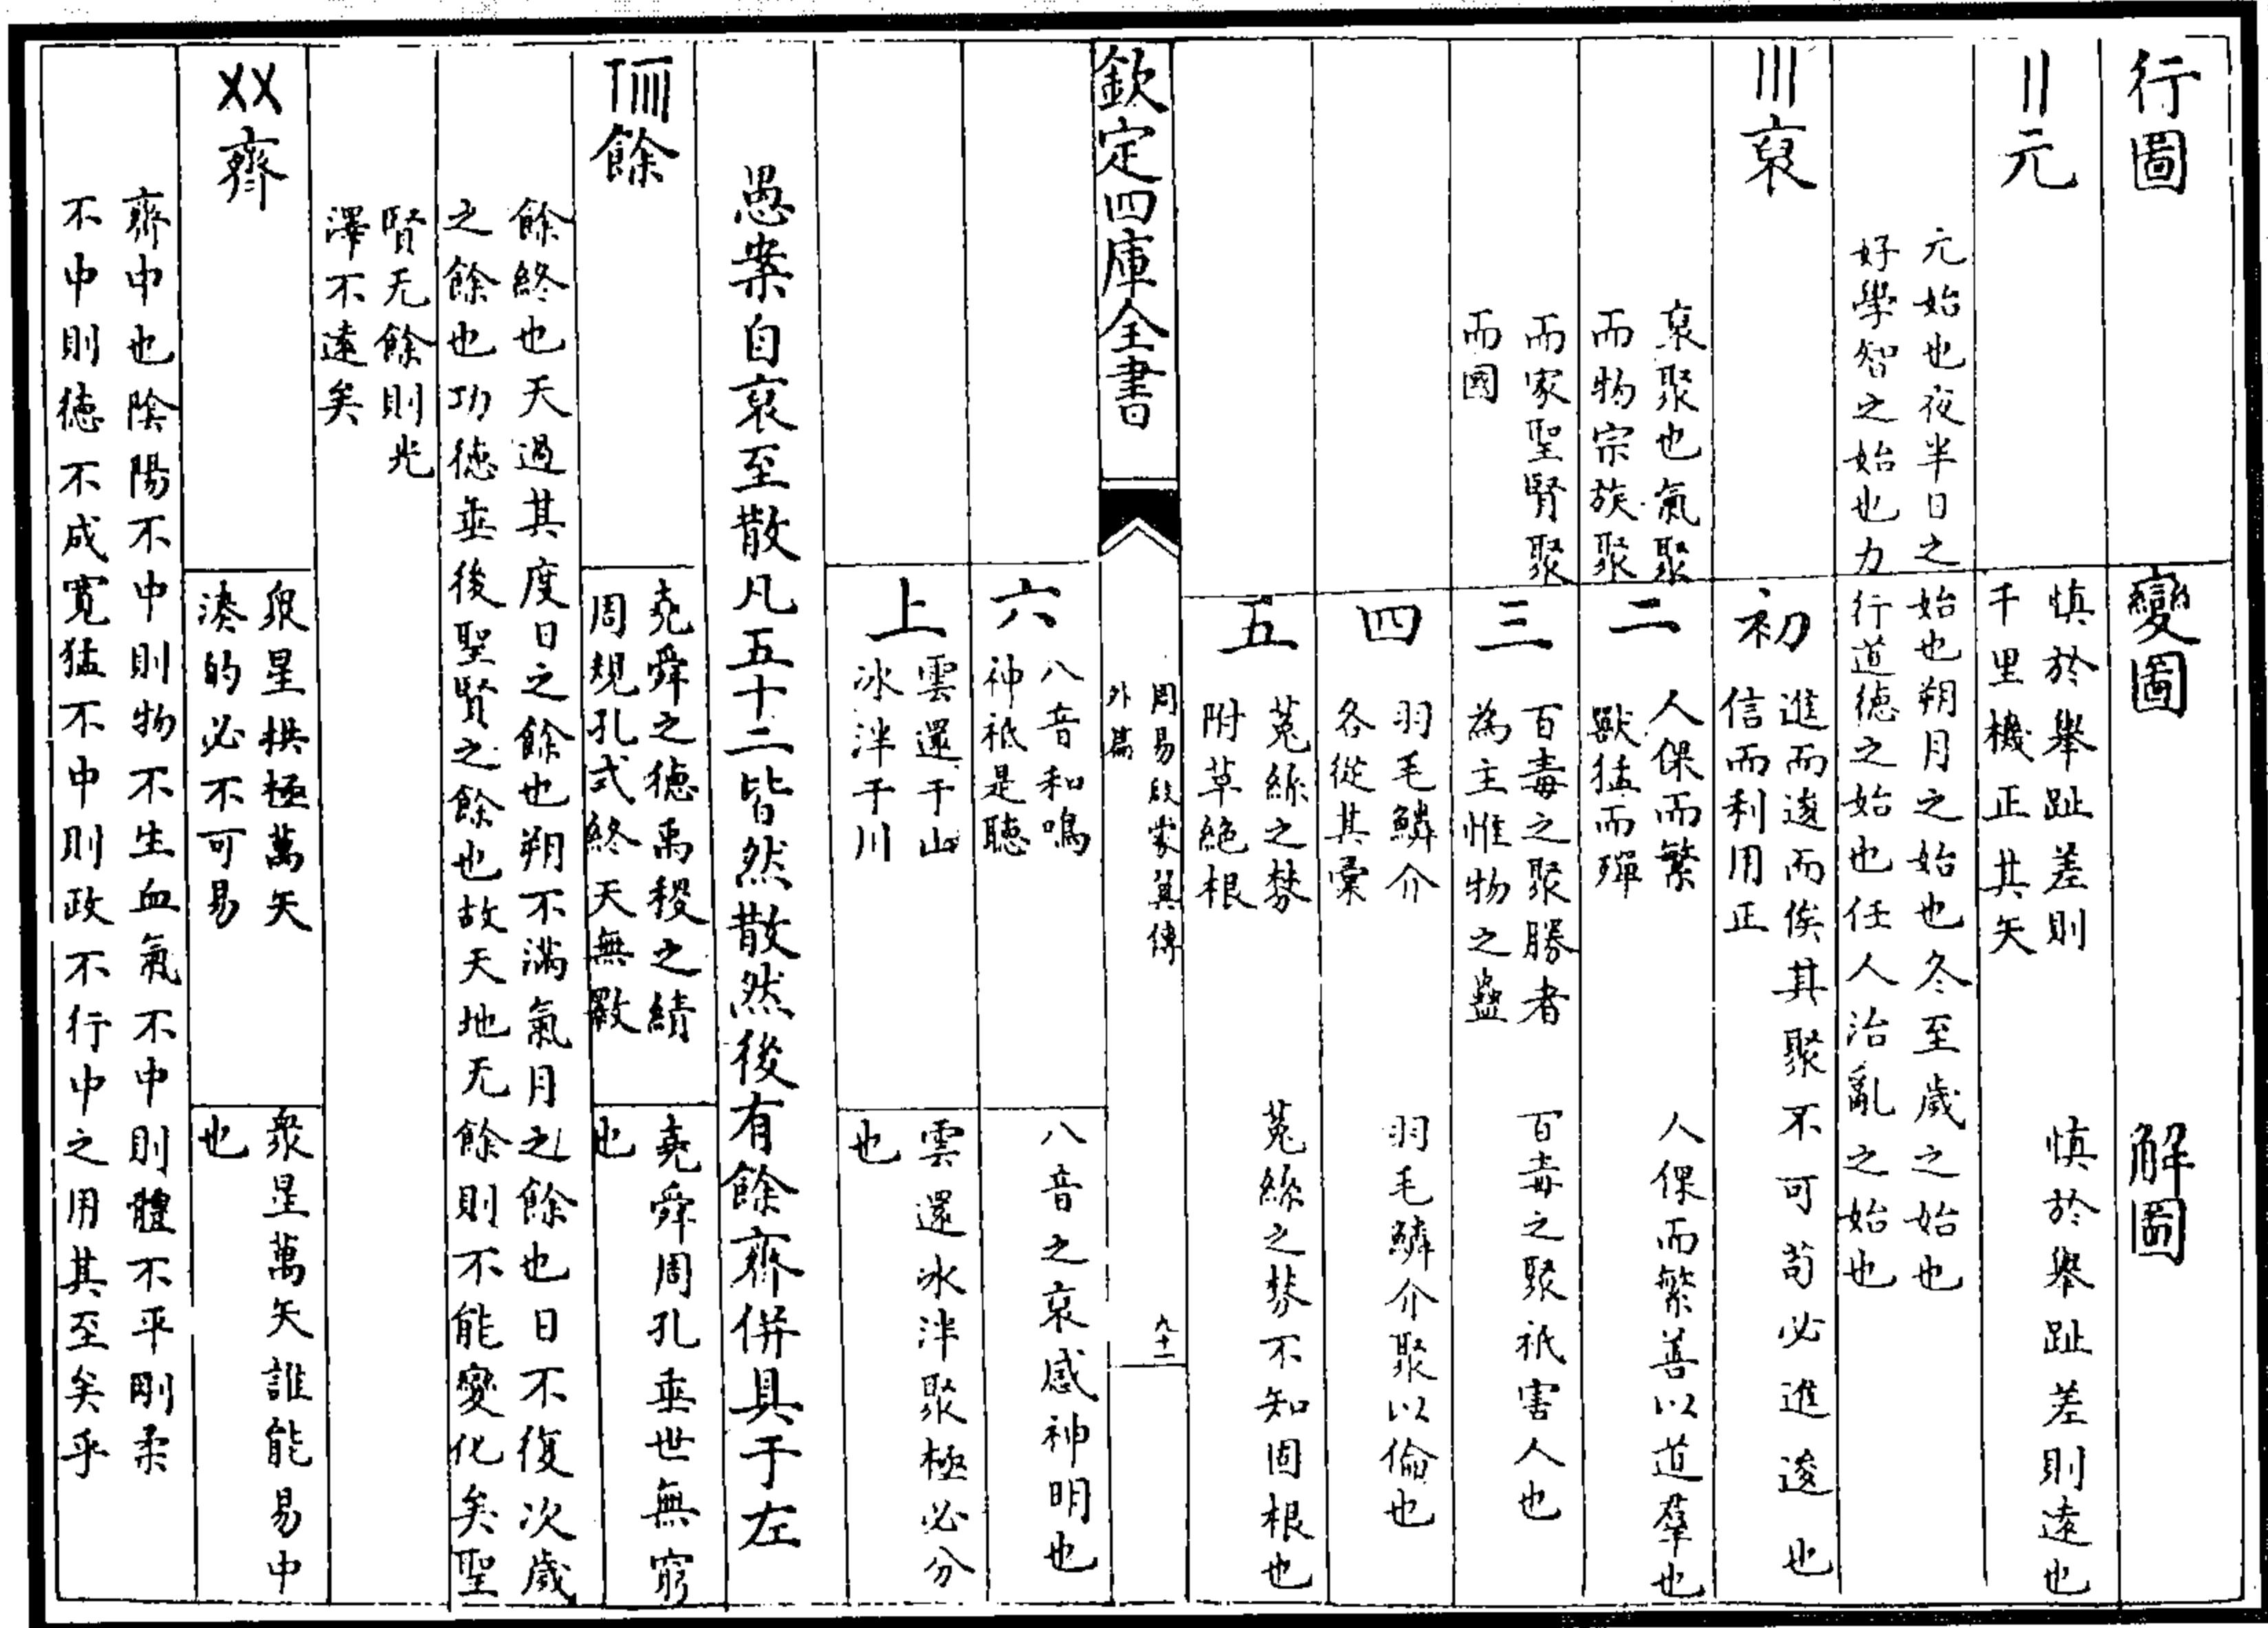 行圖
變圖
解圖
〢元
慎於舉趾差則
千里機正其矢
慎於舉趾差則遠也
元始也夜半日之始也朔月之始也冬至歲之始也
好學智之始也力行道德之始也任人治亂之始也
〣裒
初
進而逡而俟
信而利用正
其聚不可苟必進逡也
裒聚也氣聚
而物宗族聚
二
人倮而繁
獸猛而殫
人倮而繁善以道羣也
而家聖賢聚
而國
三
百毒之聚勝者
為主惟物之蠱
百毒之聚祇害人也
四
羽毛鱗介
各從其彙
羽毛鱗介聚以倫也
五
菟絲之棼
附草絕根
菟絲之棼不知固根也
欽定四庫全書
周易啟蒙翼傳
外篇
九十一
六
八音和鳴
神祇是聽
八音之裒感神明也
上
雲還于山
冰泮于川
雲還冰泮聚極必分
也
愚案自裒至散凡五十二皆然散然後有餘齊併具于左
餘
堯舜之德禹稷之績
周規孔式終天無斁
堯舜周孔垂世無窮
也
餘終也天過其度日之餘也朔不滿氣月之餘也日不復次歲
之餘也功德垂後聖賢之餘也故天地无餘則不能變化矣聖
賢无餘則光
澤不遠矣
〤〤齊
衆星拱極萬矢
湊的必不可易
衆星萬矢誰能易中
也
齊中也陰陽不中則物不生血氣不中則體不平剛柔
不中則德不成寬猛不中則政不行中之用其至矣乎